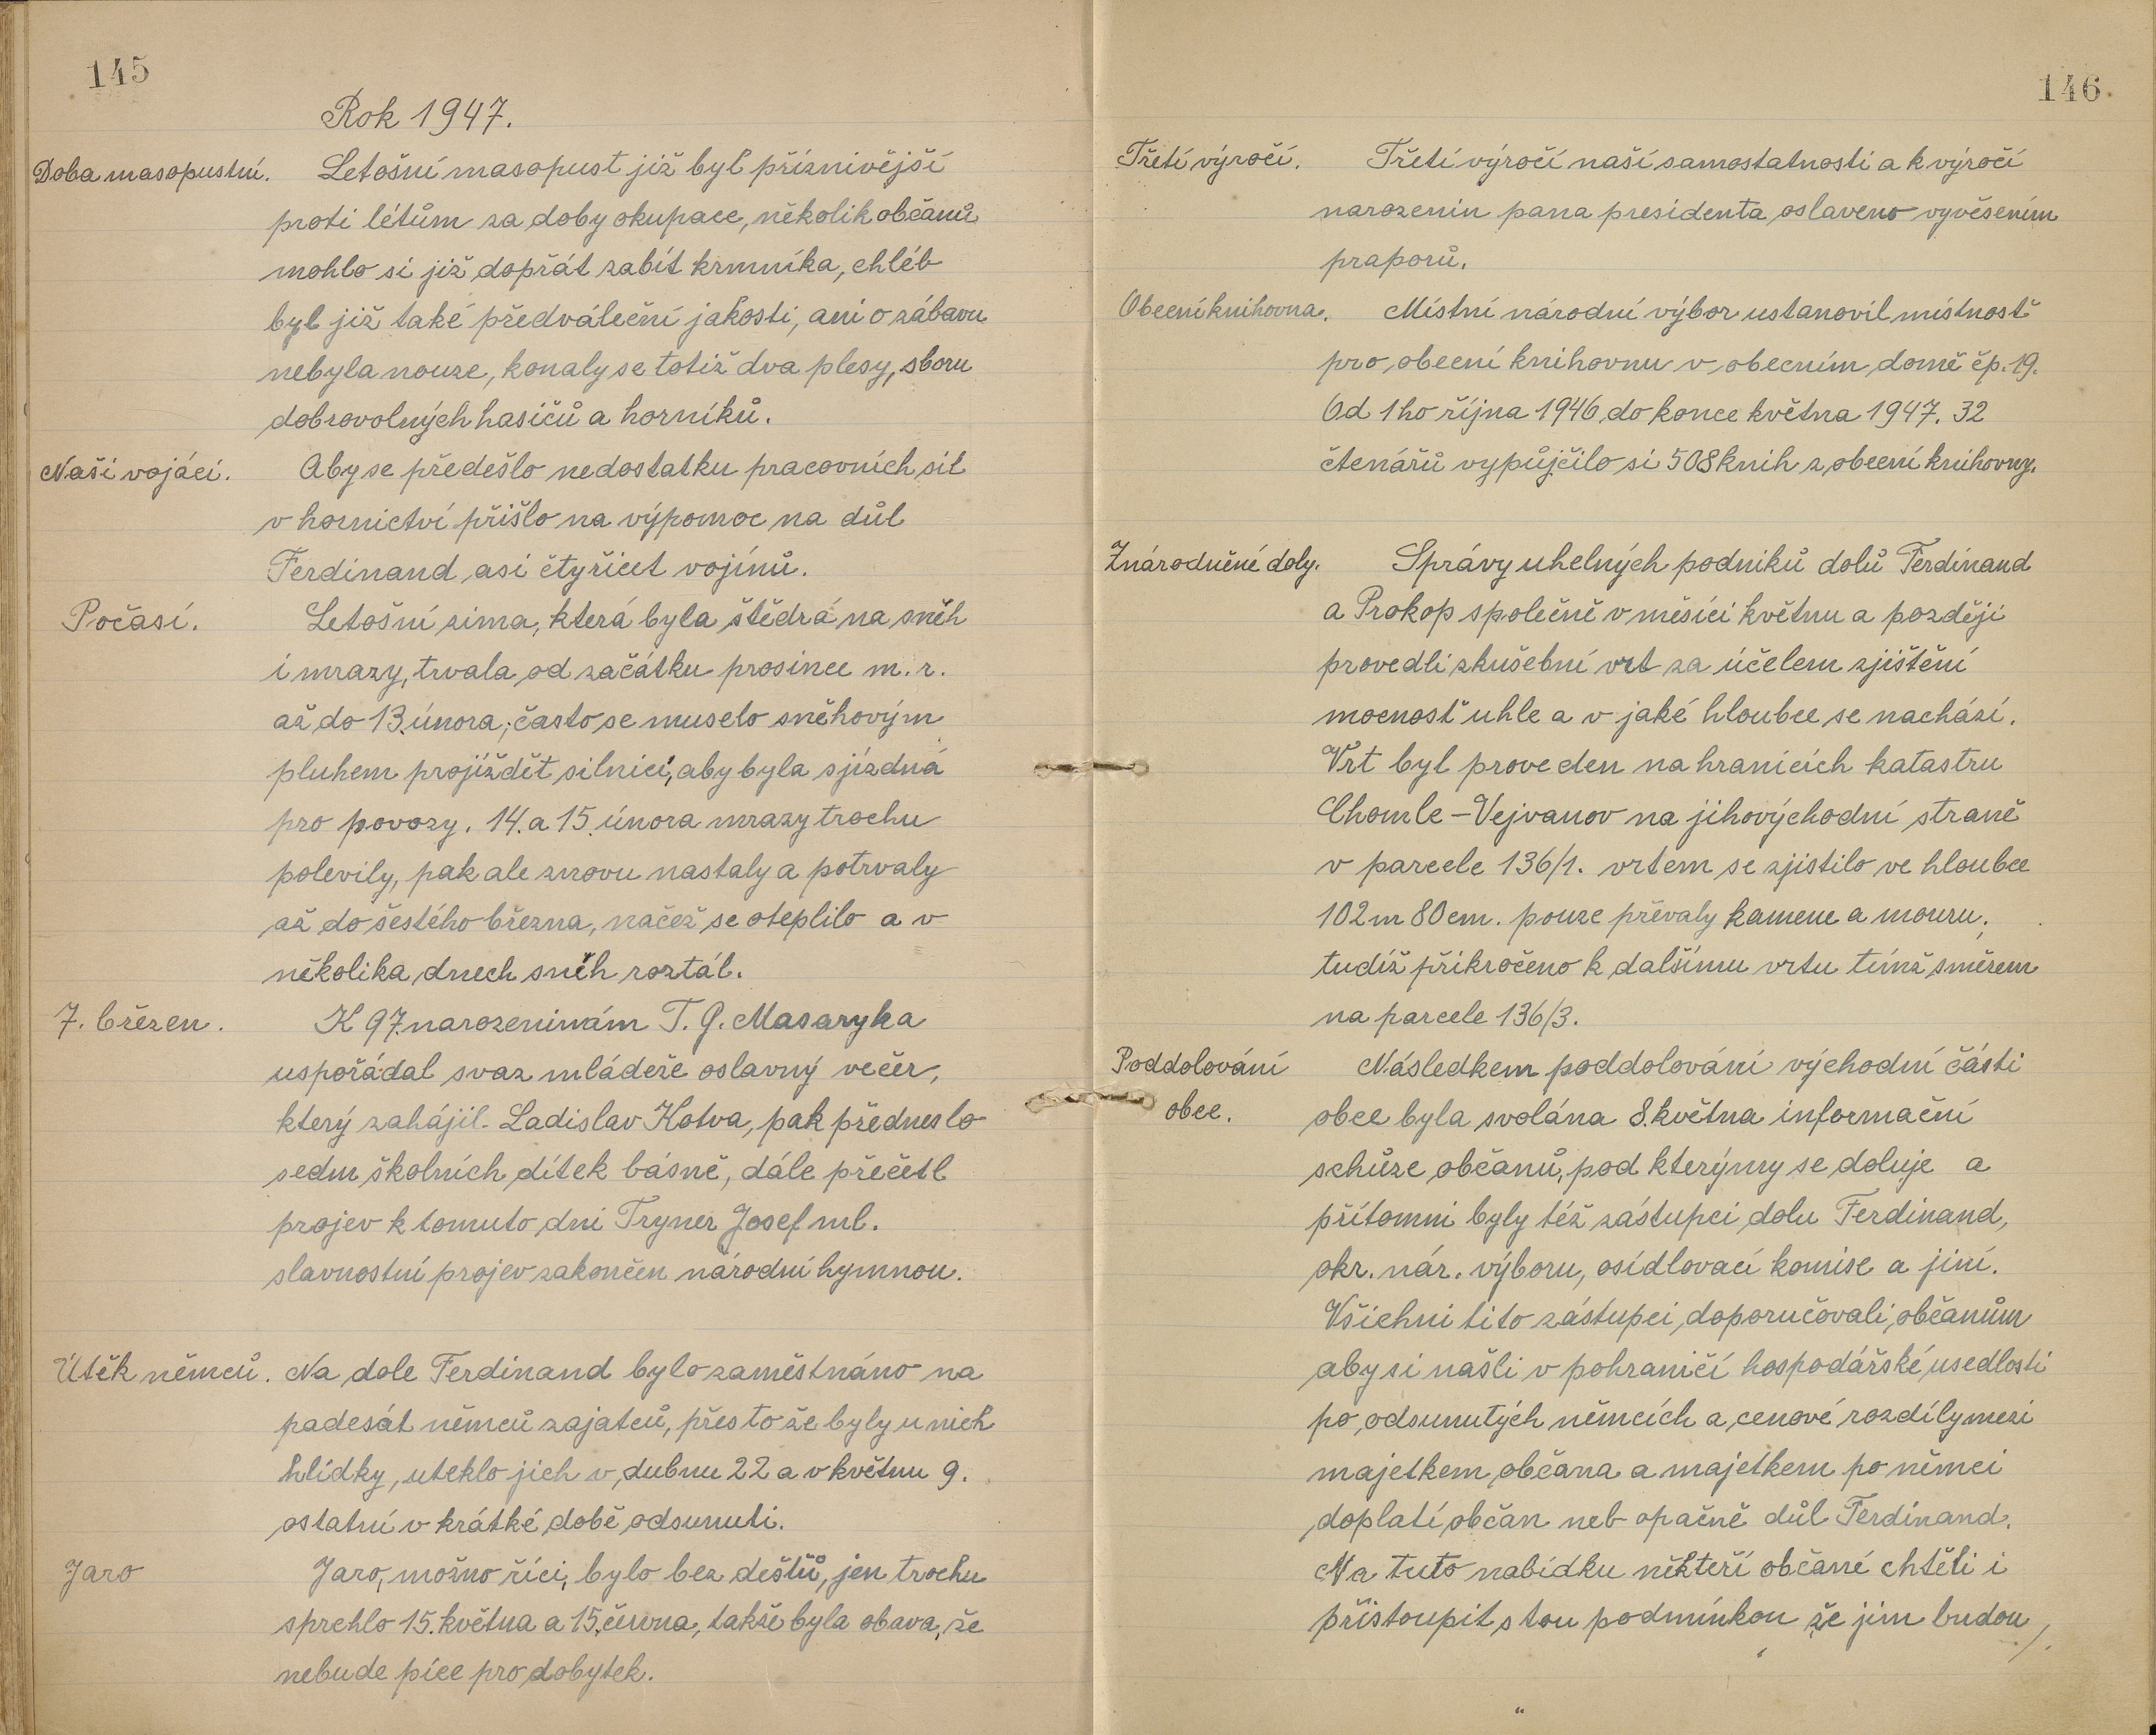 145
Rok 1947.
Doba masopustní. Letošní masopust již byl příznivější
proti létům za doby okupace, několik občanů
mohlo si již dopřát zabít krmníka, chléb
byl již také předváleční jakosti, ani o zábavu
nebyla nouze, konaly se totiž dva plesy, sboru
dobrovolných hasičů a horníků.
Naši vojáci. Aby se předešlo nedostatku pracovních sil
v hornictví přišlo na výpomoc na důl
Ferdinand asi čtyřicet vojínů.
Počasí. Letošní zima, která byla štědrá na sněh
i mrazy, trvala od začátku prosince m. r.
až do 13. února, často se muselo sněhovým
pluhem projíždět silnicí, aby byla sjízdná
pro povozy. 14. a 15. února mrazy trochu
polevily, pak ale znovu nastaly a potrvaly
až do šestého března, načež se oteplilo a v
několika dnech sněh roztál.
7. březen. K 97. narozeninám T. G. Masaryka
uspořádal svaz mládeže oslavný večer,
který zahájil Ladislav Kotva, pak předneslo
sedm školních dítek básně, dále přečetl
projev k tomuto dni Tryner Josef ml.
slavnostní projev zakončen národní hymnou.
Útěk němců. Na dole Ferdinand bylo zaměstnáno na
padesát němců zajatců, přes to že byly u nich
hlídky, uteklo jich v dubnu 22 a v květnu 9.
ostatní v krátké době odsunuti.
Jaro Jaro, možno říci, bylo bez dešťů, jen trochu
sprchlo 15. května a 15. června, takže byla obava, že
nebude píce pro dobytek.
146
Třetí výročí. Třetí výročí naší samostatnosti a k výročí
narozenin pana presidenta oslaveno vyvěsením
praporů.
Obecní knihovna. Místní národní výbor ustanovil místnosť
pro obecní knihovnu v obecním domě čp. 19.
Od 1ho října 1946 do konce května 1947. 32
čtenářů vypůjčilo si 508 knih z obecní knihovny.
Znárodněné doly. Správy uhelných podniků dolů Ferdinand
a Prokop společně v měsíci květnu a později
provedli zkušební vrt za účelem zjištění
mocnosť uhle a v jaké hloubce se nachází.
Vrt byl proveden na hranicích katastru
Chomle-Vejvanov na jihovýchodní straně
v parcele 136/1. vrtem se zjistilo ve hloubce
102 m 80 cm. pouze převaly kamene a mouru,
tudíž přikročeno k dalšímu vrtu tímž směrem
na parcele 136/3.
Poddolování Následkem poddolování východní části
obce. obce byla svolána 8. května informační
schůze občanů, pod kterýmy se doluje a
přítomni byly též zástupci dolu Ferdinand,
okr. nár. výboru, osídlovací komise a jiní.
Všichni tito zástupci doporučovali občanům
aby si našli v pohraničí hospodářské usedlosti
po odsunutých němcích a cenové rozdíly mezi
majetkem občana a majetkem po němci
doplatí občan neb opačně důl Ferdinand.
Na tuto nabídku někteří občané chtěli i
přistoupit s tou podmínkou že jim budou /.